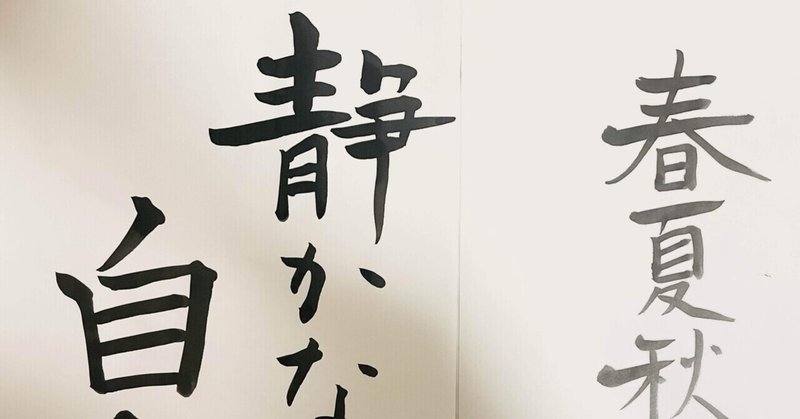 春夏秋
静かな
自